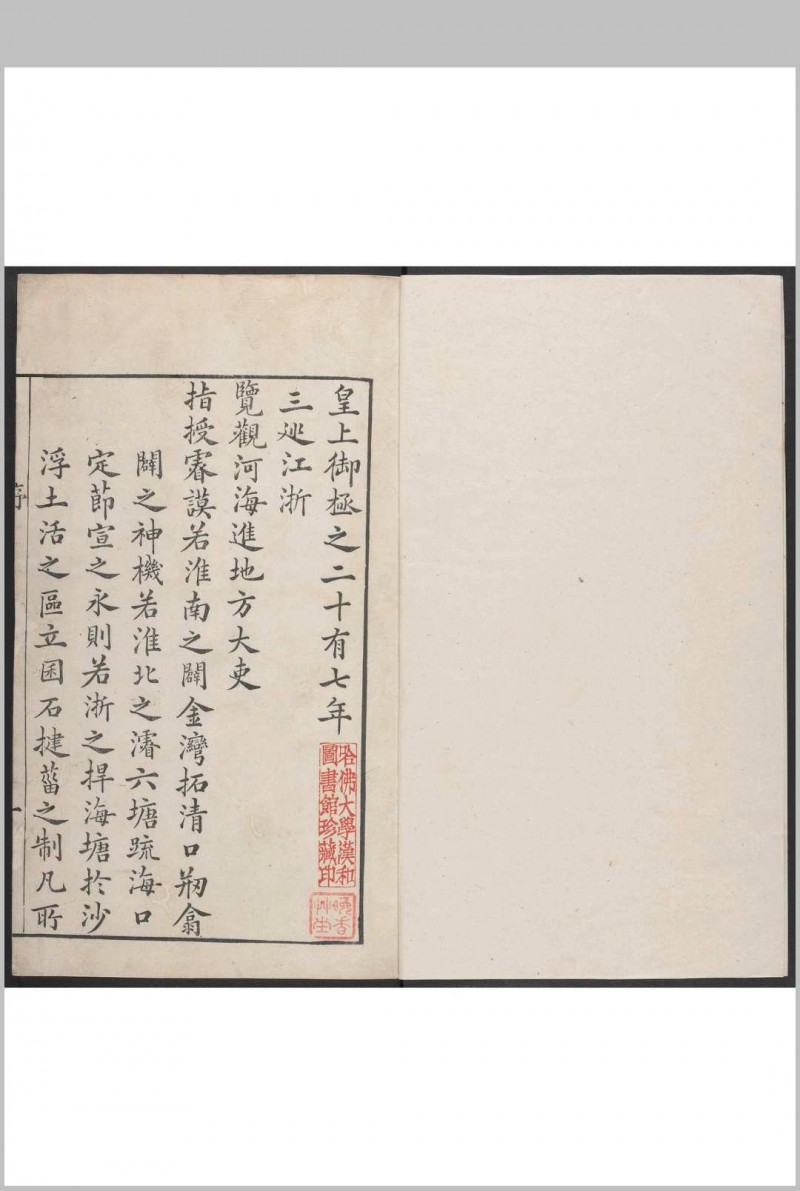 皇上御極之二十有七年
三巡江浙
覽觀河海進地方大吏
指授睿謨若淮南之闢金灣拓清口剏翕
闢之神機若淮北之濬六塘疏海口
定節宣之永則若浙之捍海塘於沙
浮土活之區立囷石揵菑之制凡所
序
一
哈佛大學漢和
圖書館珍藏印
晚香
艸生